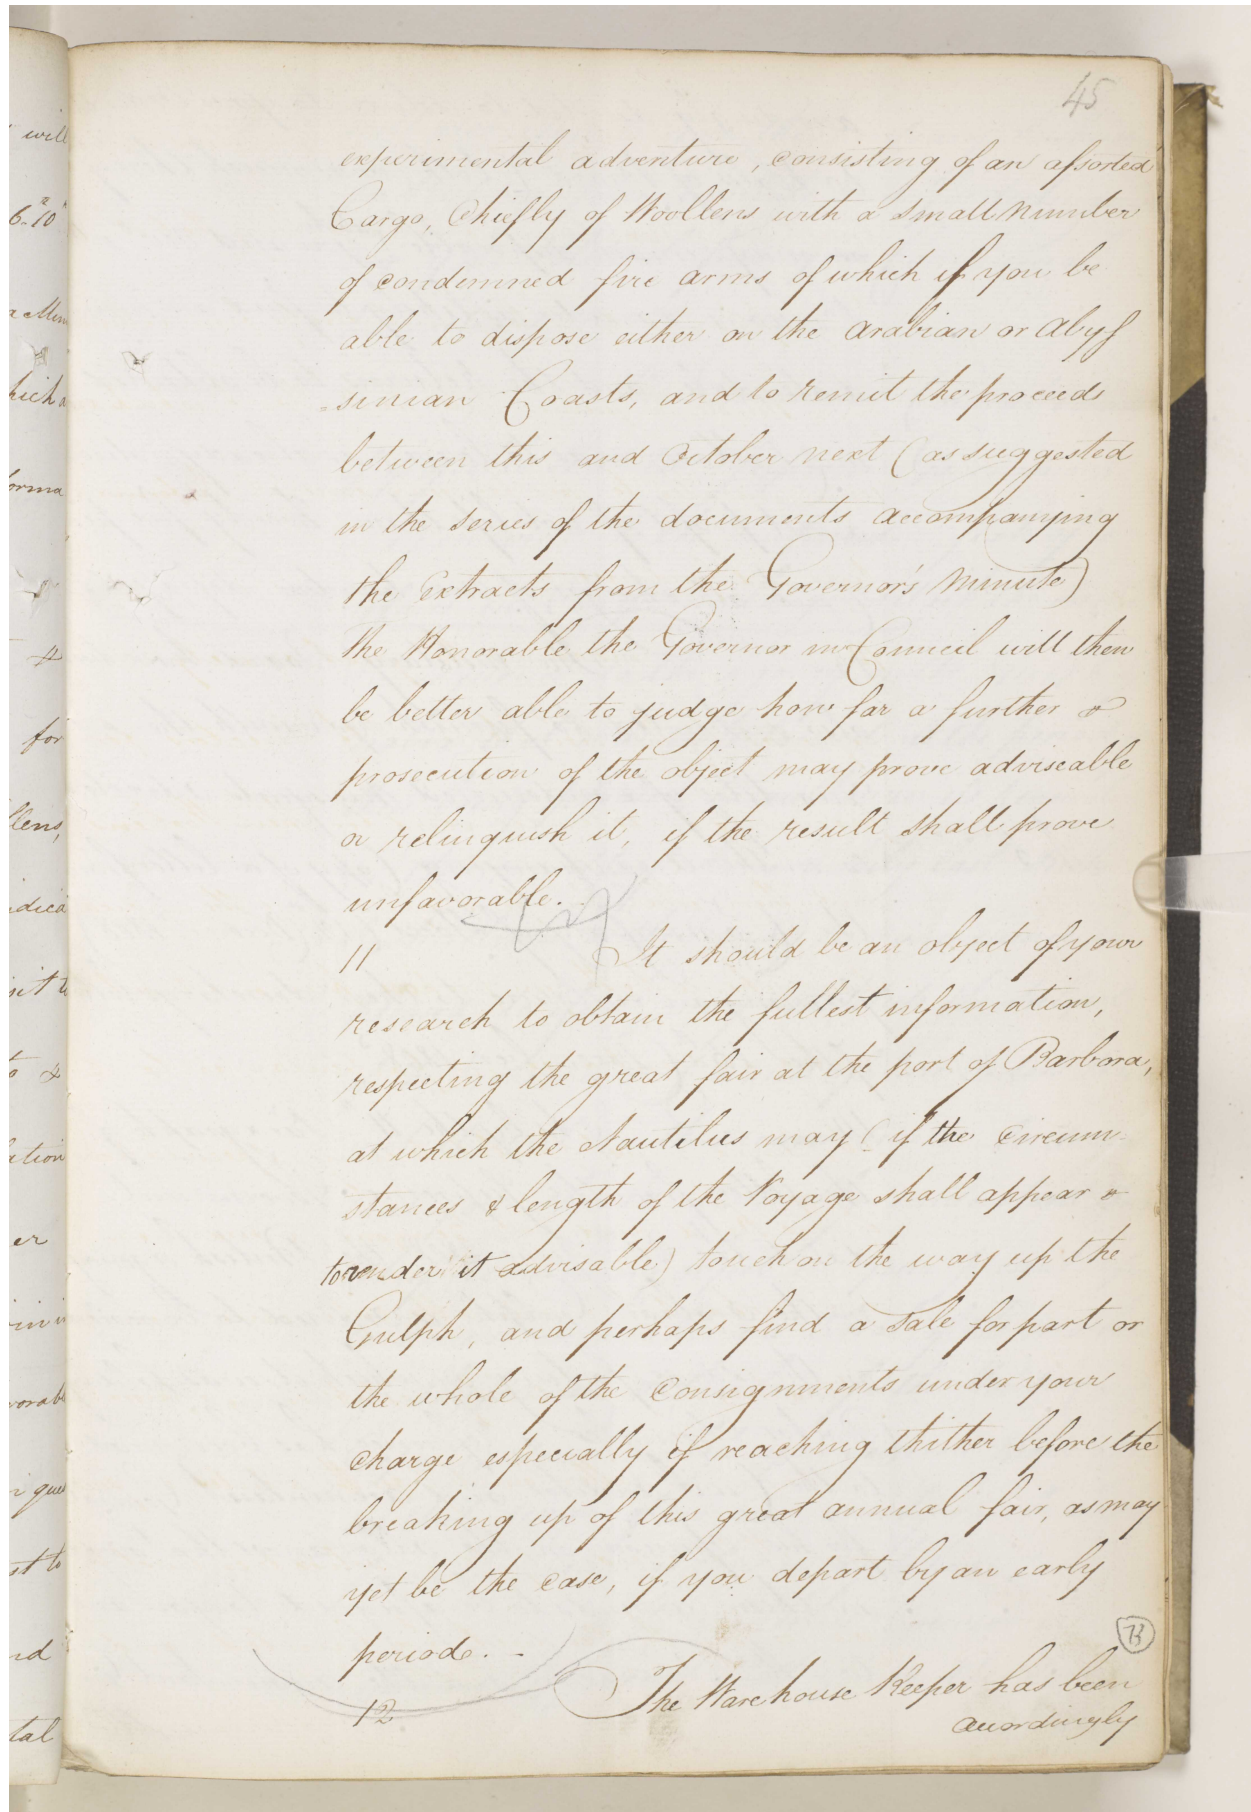 45
experimental adventure, consisting of an assorted
Cargo, Chiefly of Woollens with a small number
of condemned fire arms of which if you be
able to dispose either on the arabian or Abys
=sinian Coasts, and to remit the proceeds
between this and October next (as suggested
in the series of the documents accompanying
the Extracts from the Governor's Minute)
the Honorable the Governor in Council will then
be better able to judge how far a further &
prosecution of the object may prove adviseable
or relinquish it, if the result shall prove
unfavorable.
11 It should be an object of your
research to obtain the fullest information,
respecting the great fair at the port of Barbora,
at which the Nautilus may (if the Circum
stances & length of the Voyage shall appear &
to render it advisable) touch on the way up the
Gulph, and perhaps find a sale for part or
the whole of the Consignments under your
charge especially if reaching thither before the
breaking up of this great annual fair, as may
yet be the case, if you depart by an early
period. -
12 The Warehouse Keeper has been
accordingly
will
6. 10
hich a
forma
&
for
llens,
&
ation
er
vorabl
st to
nd
tal